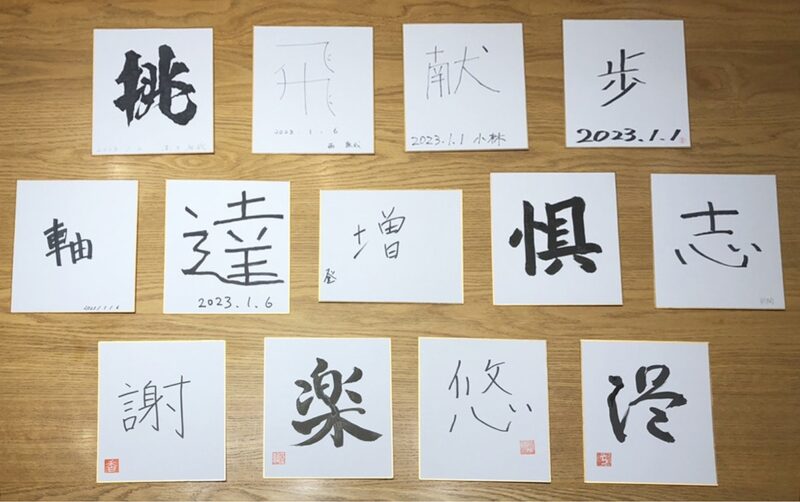 挑
飛
2023.1.6
献
2023.1.1 小林
歩
2023.1.1
軸
達
2023.1.6
増
登
惧
志
謝
楽
悠